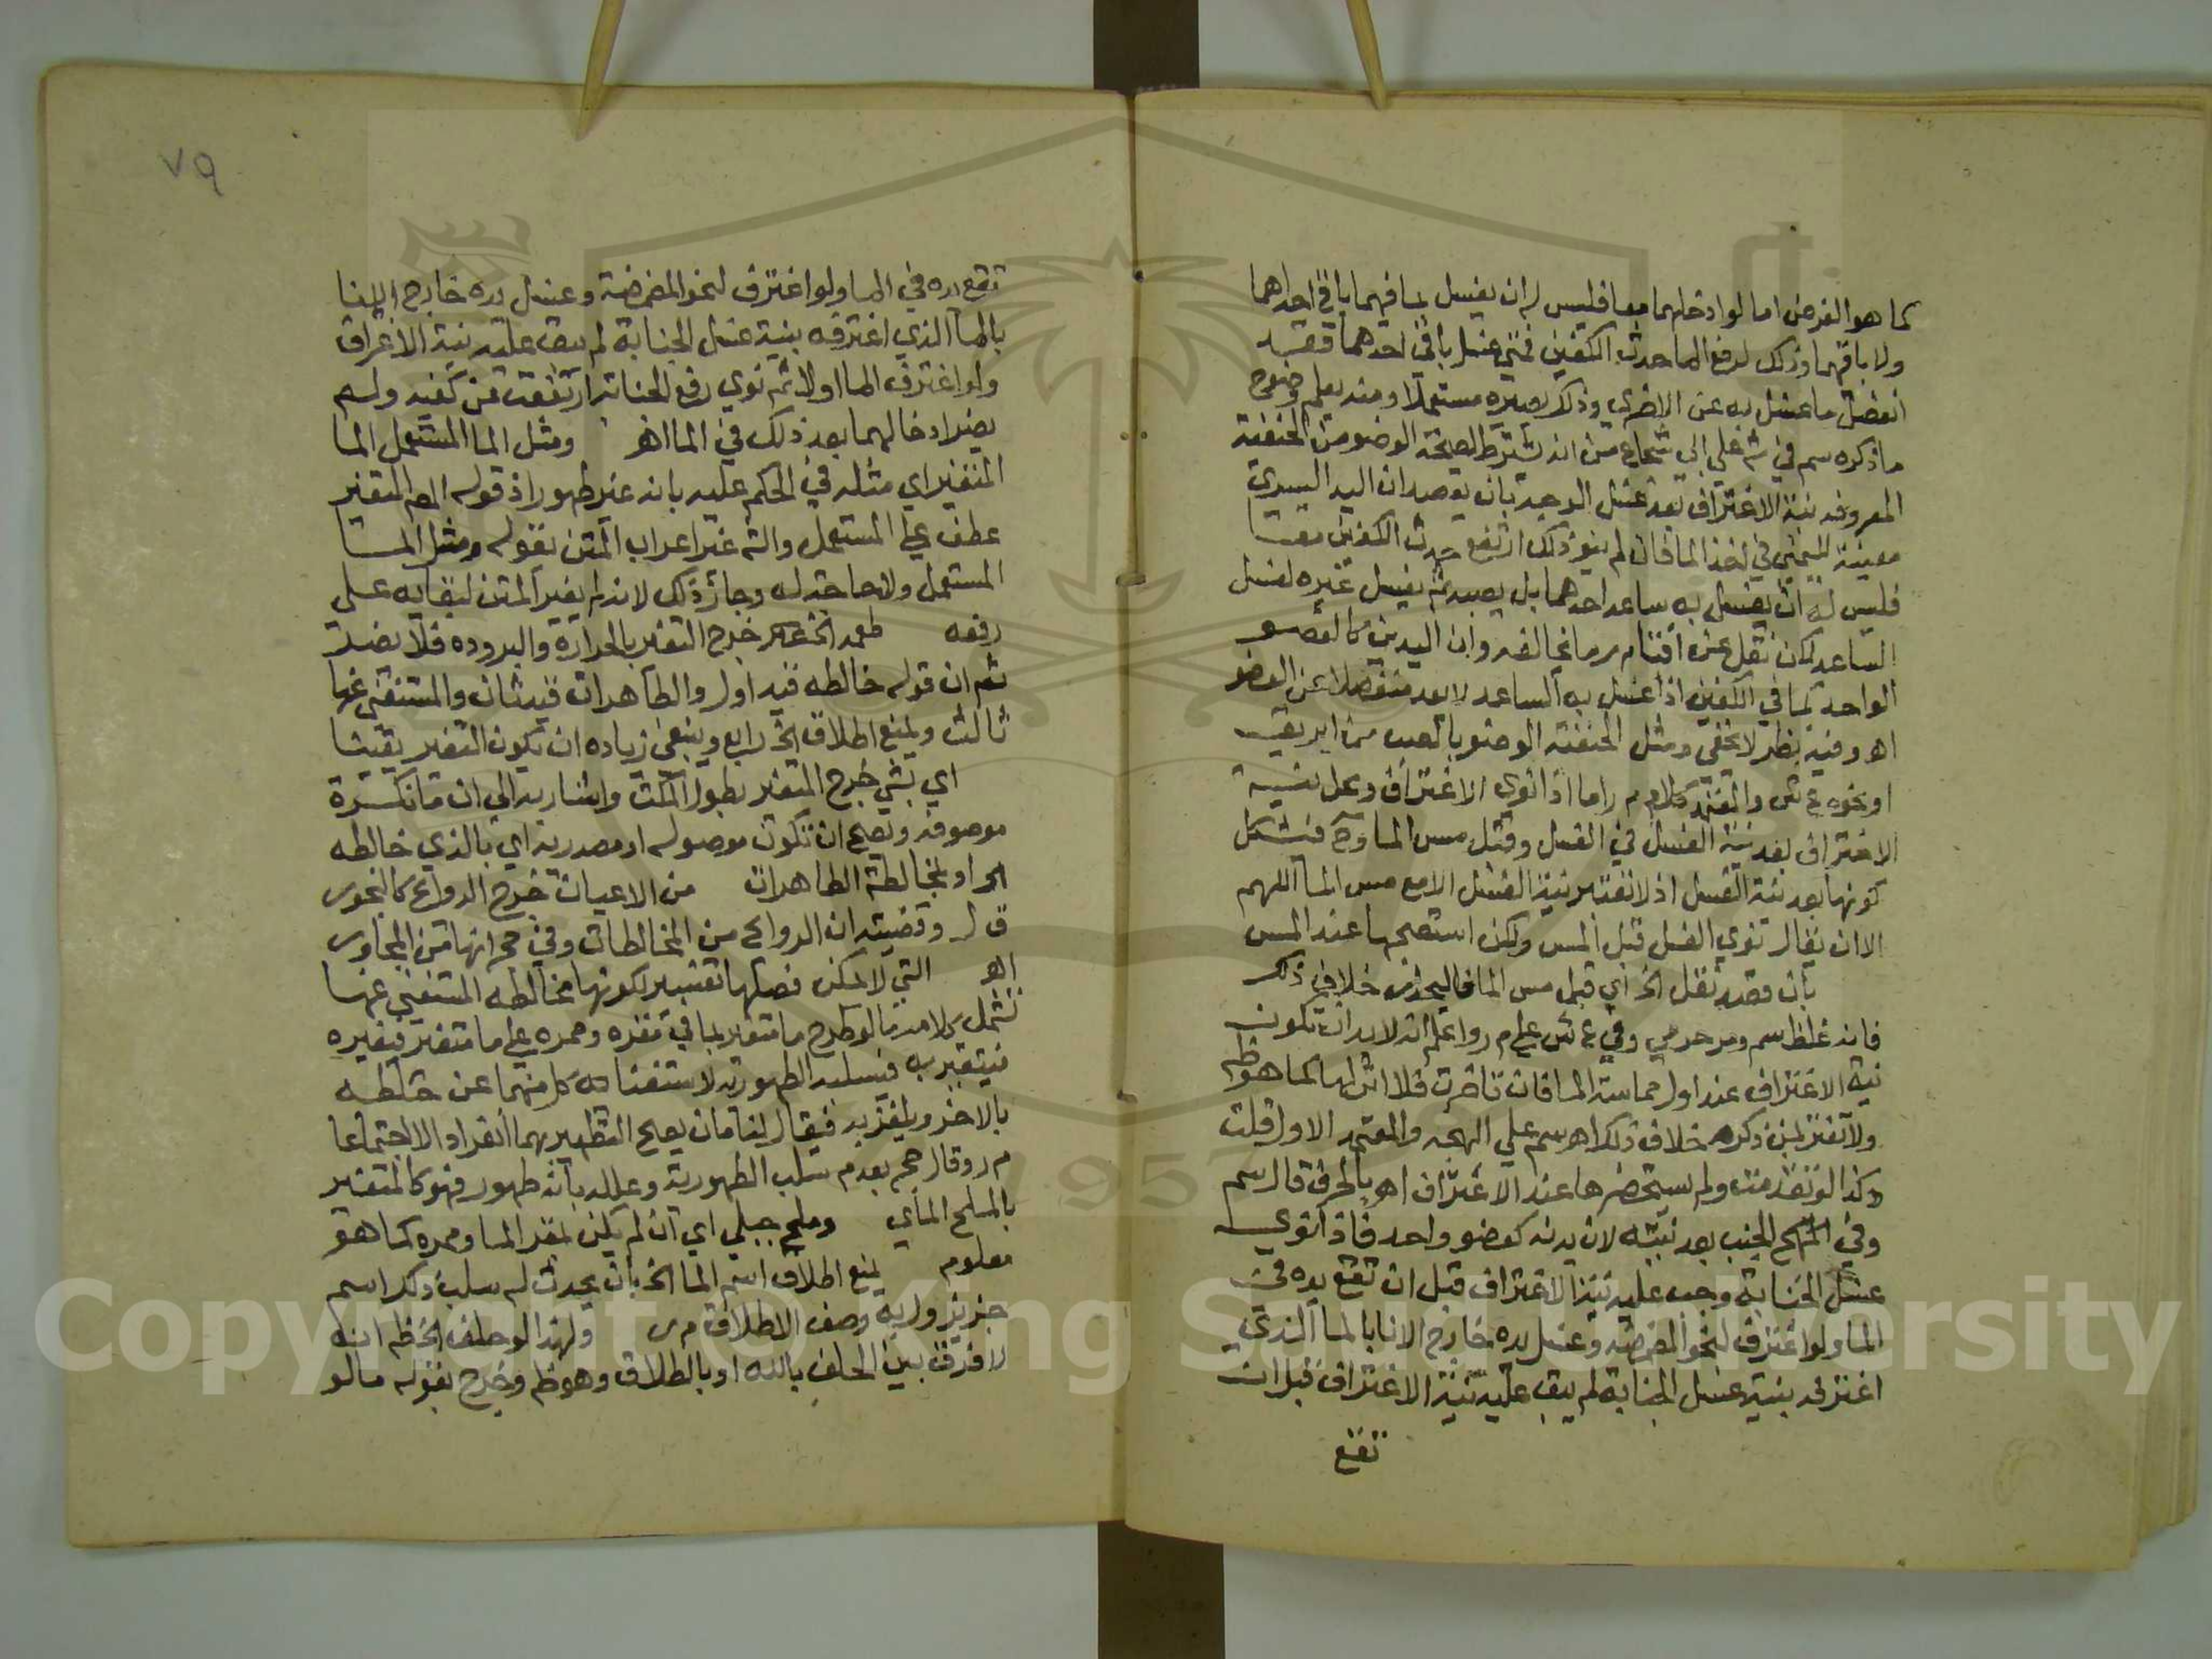 كما هو الفرض اما لو ادخلهما معا فليس له ان يغسل بما فيهما باقي احداهما
ولا باقيهما وذلك لرفع الما حدث الكفين فمتى غسل باقي احدهما فقد
انفصل ما غسل به عن الاخرى وذلك يصيره مستعملا ومنه يعلم وضوح
ما ذكره سم في ش علي ابي شجاع من انه يشترط لصحة الوضو من الحنفية
المعروفة نية الاغتراف بعد غسل الوجه بان يقصد ان اليد اليسرى
معينة لليمنى في اخذ الما فان لم ينو ذلك ارتفع حدث الكفين معا
فليس له ان يغسل به ساعد احدهما بل يصبه ثم يغسل غيره لغسل
الساعد لكن نقل عن افتا م ر ما يخالفه وان اليدين كالعضو
الواحد فما في الكفين اذا غسل به الساعد لا يعد منفصلا عن العضو
اهـ وفيه نظر لا يخفى ومثل الحنفية الوضو بالصب من ابريق
او نحوه ع ش والمعتمد كلام م ر اما اذا نوى الاغتراف ومحل نية
الاغتراف بعد نية الغسل في الغسل وقبل مس الما وح فيشكل
كونها بعد نية الغسل اذ لا تعتبر نية الغسل الا مع مس الما اللهم
الا ان يقال تنوي الغسل قبل المس ولكن استصحبها عند المس
بان قصد نقل الخ اي قبل مس الما فاليحذر خلاف ذلك
فانه غلط سم ومرحومي وفي ع ش علي م ر واعلم انه لا بد ان تكون
نية الاغتراف عند اول مماسة الما فان تاخرت فلا اثر لها كما هو ظ
ولا تغتر بمن ذكر خلاف ذلك اهـ سم علي البهجه والمعتمد الاول قلت
وكذا لو تقدمت ولم يستحضرها عند الاغتراف اهـ بالحرف قال سم
وفي المنهج الجنب بعد نيته لان بدنه كعضو واحد فاذا نوى
غسل الجنابة وجب عليه نية الاغتراف قبل ان تقع يده في
الما ولو اغترف لنحو المضمضه وغسل يده خارج الانا بالما الذي
اغترفه بنية غسل الجنابة لم يبق عليه نية الاغتراف قبل ان
تقع
٧٩
تقع يده في الما ولو اغترف لنحو المضمضة وغسل يده خارج الانا
بالما الذي اغترفه بنية غسل الجنابة لم يبق عليه نية الاغتراف
ولو اغترف الما اولا ثم نوى رفع الجنابة ارتفعت عن كفيه ولم
يضر ادخالهما بعد ذلك في الما اهـ ومثل الما المستعمل الما
المتغير اي مثله في الحكم عليه بانه غير طهور اذ قوله المتغير
عطف علي المستعمل والش غير اعراب المتن بقوله ومثل الما
المستعمل ولا حاجة له وجاز ذلك لانه لم يغير المتن لبقايه على
رفعه طعمه الخ خرج التغير بالحرارة والبروده فلا يضر
ثم ان قوله خالطه قيد اول والطاهرات قيد ثان والمستغني عنها
ثالث ويمنع اطلاق الخ رابع وينبغي زيادة ان يكون التغير يقينا
اي بشي خرج المتغير بطول المكث واشار به الى ان ما نكرة
موصوفة ويصح ان تكون موصولة او مصدرية اي بالذي خالطه
او بمخالطة الطاهرات من الاعيان خرج الروائح كالبخور
ق ل وقضيته ان الروائح من المخالطات وفي حج انها من المجاور
اهـ التي لا يمكن فصلها تفسير لكونها مخالطه المستغني عنها
شمل كلامه ما لو طرح ما متغير بما في مقره وممره علي ما متغير فيغيره
فيتغير به فيسلبه الطهورية لاستغنا كل منهما عن خلطه
بالاخر ويلغز به فيقال لنا مآن يصح التطهير بهما انفرادا لا اجتماعا
م ر وقال حج بعدم سلب الطهورية وعلله بانه طهور فهو كالمتغير
بالملح المائي وملح جبلي اي ان لم يكن بمقر الما وممره كما هو
معلوم يمنع اطلاق اسم الما الخ بان يحدث له سلب ذلك اسم
وصف الاطلاق م ر ولهذا لو حلف الخ ظ انه
لا فرق بين الحلف بالله او بالطلاق وهو ظ وخرج بقوله ما لو
Copyright © King Saud University
1957